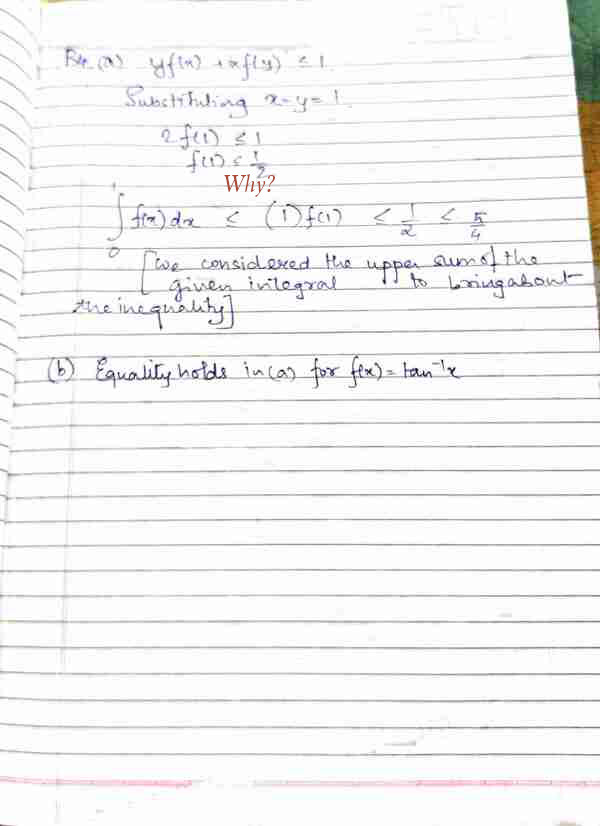 (a) yf(x) + xf(y) ≤ 1.
Substituting x=y=1.
2f(1) ≤ 1
f(1) ≤ 1/2
Why?
∫₀¹ f(x) dx ≤ (1) f(1) ≤ 1/2 ≤ 5/4
[we considered the upper sum of the
given integral to bring about
the inequality]
(b) Equality holds in (a) for f(x) = tan⁻¹x